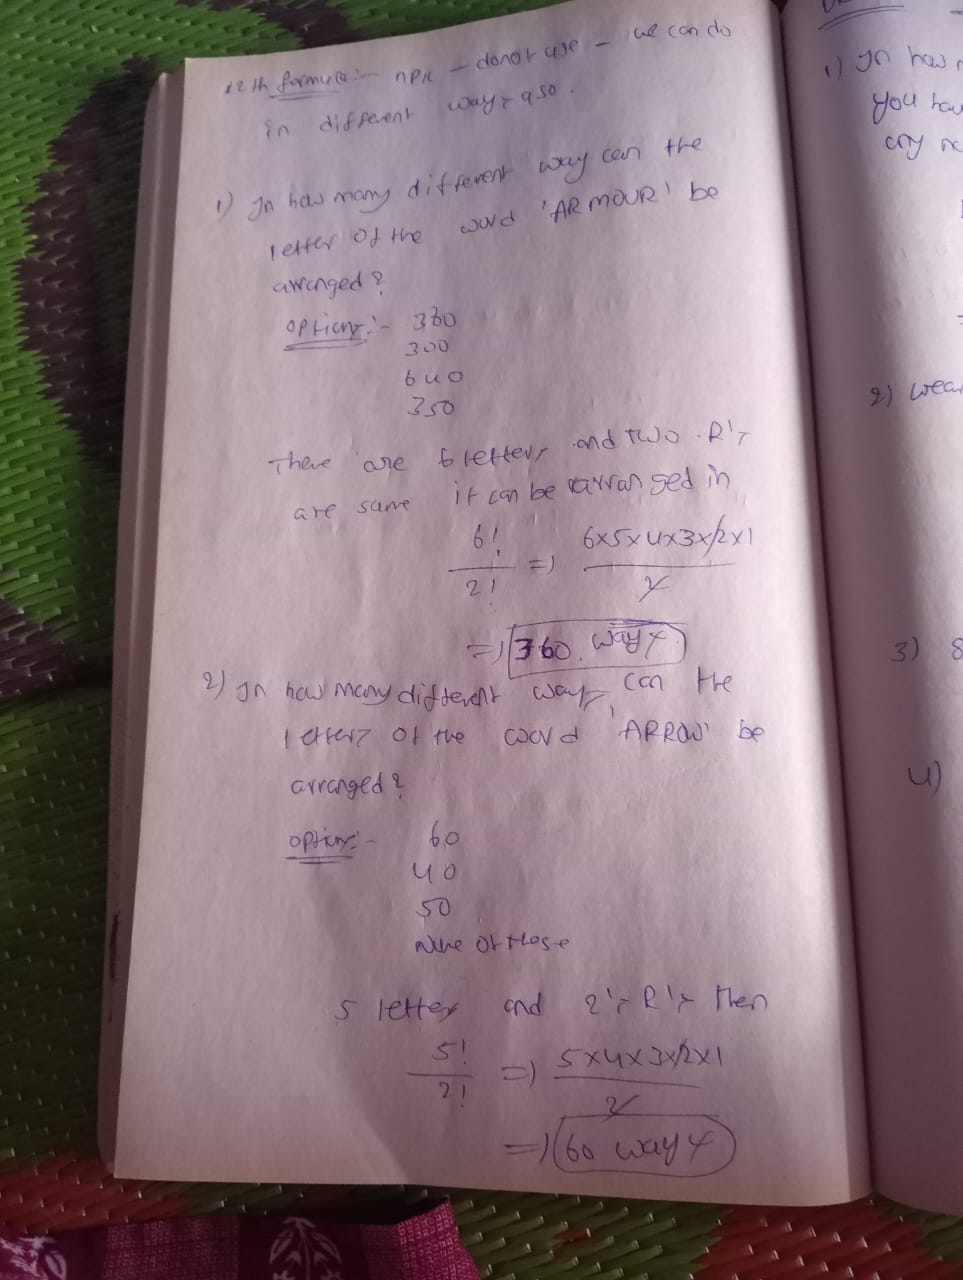 12th formula:- nPr - donot use - we can do
in different ways also.
1) In how many different way can the
letter of the word 'ARMOUR' be
arranged?
options:- 360
300
640
350
There are 6 letters and two R's
are same it can be arranged in
6!/2! => 6x5x4x3x2x1/2
=> 360 ways
2) In how many different ways can the
letters of the word 'ARROW' be
arranged?
options:- 60
40
50
None of those
5 letter and 2's R's then
5!/2! => 5x4x3x2x1/2
=> 60 ways
1) In how
you hav
any
2)
3) 8
4)